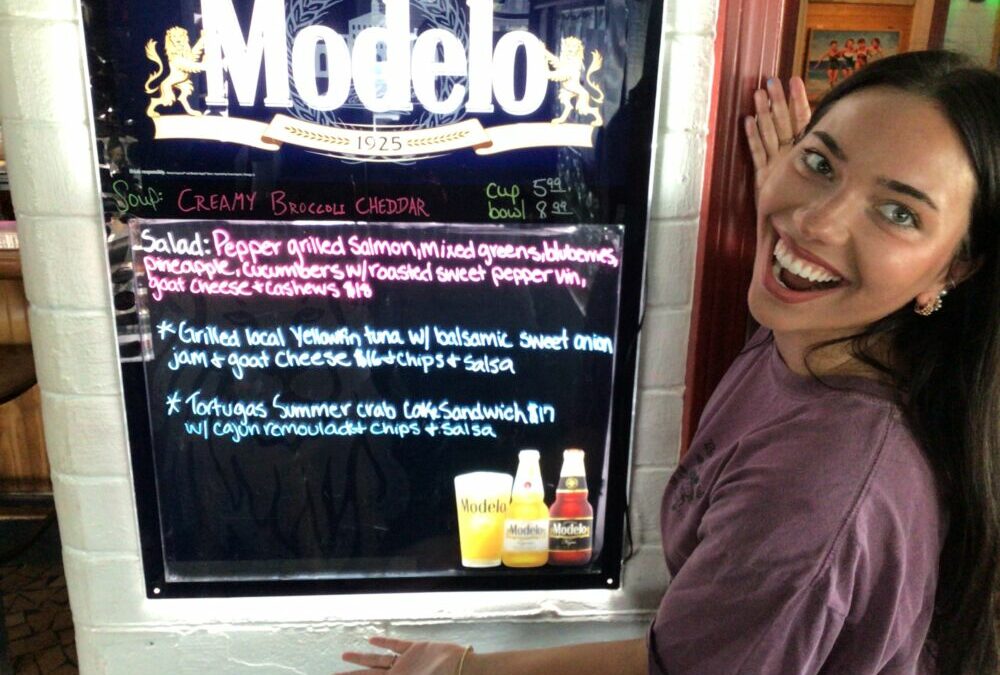 Modelo
1925
Soup: CREAMY BROCCOLI CHEDDAR cup 5.99
bowl 8.99
Salad: Pepper grilled Salmon, mixed greens, bluberries,
pineapple, cucumbers w/ roasted sweet pepper vin,
goat cheese + cashews $18
* Grilled local Yellowfin tuna w/ balsamic sweet onion
jam & goat cheese $16 + chips + Salsa
* Tortugas Summer crab Cake Sandwich $17
w/ cajun remoulade + chips + salsa
Modelo
Modelo
Modelo